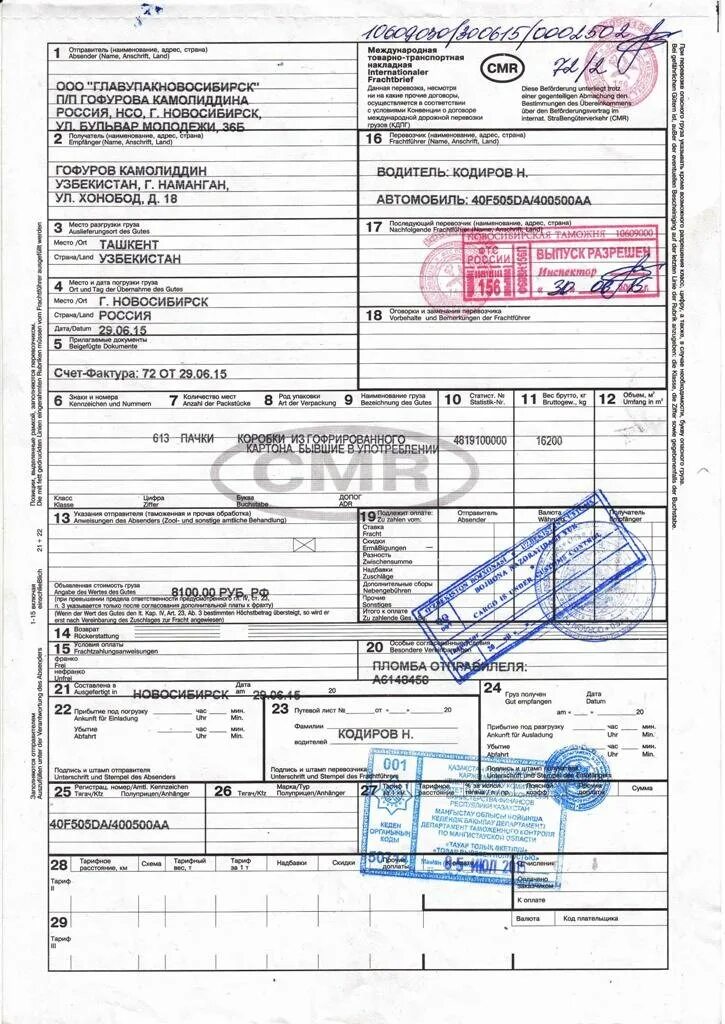 10609030/300615/0002502
72/2
1 Отправитель (наименование, адрес, страна)
Absender (Name, Anschrift, Land)
ООО "ГЛАВУПАКНОВОСИБИРСК"
П/П ГОФУРОВА КАМОЛИДДИНА
РОССИЯ, НСО, Г. НОВОСИБИРСК,
УЛ. БУЛЬВАР МОЛОДЕЖИ, 36Б
Международная
товарно-транспортная
накладная
Internationaler
Frachtbrief
CMR
Данная перевозка, несмотря
ни на какие прочие договоры,
осуществляется в соответствии
с условиями Конвенции о договоре
международной дорожной перевозки
грузов (КДПГ)
Diese Beförderung unterliegt trotz
einer gegenteiligen Abmachung den
Bestimmungen des Übereinkommens
über den Beförderungsvertrag im
internat. Straßengüterverkehr (CMR)
2 Получатель (наименование, адрес, страна)
Empfänger (Name, Anschrift, Land)
ГОФУРОВ КАМОЛИДДИН
УЗБЕКИСТАН, Г. НАМАНГАН,
УЛ. ХОНОБОД, Д. 18
16 Перевозчик (наименование, адрес, страна)
Frachtführer (Name, Anschrift, Land)
ВОДИТЕЛЬ: КОДИРОВ Н.
АВТОМОБИЛЬ: 40F505DA/400500AA
3 Место разгрузки груза
Auslieferungsort des Gutes
Место /Ort ТАШКЕНТ
Страна/Land УЗБЕКИСТАН
17 Последующий перевозчик (наименование, адрес, страна)
Nachfolgende Frachtführer (Name, Anschrift, Land)
НОВОСИБИРСКАЯ ТАМОЖНЯ 10609000
ФТС
РОССИИ
156
ВЫПУСК РАЗРЕШЕН
Инспектор
« 30 » 06 15
4 Место и дата погрузки груза
Ort und Tag der Übernahme des Gutes
Место /Ort Г. НОВОСИБИРСК
Страна/Land РОССИЯ
Дата/Datum 29.06.15
18 Оговорки и замечания перевозчика
Vorbehalte und Bemerkungen der Frachtführer
5 Прилагаемые документы
Beigefügte Dokumente
Счет-Фактура: 72 ОТ 29.06.15
6 Знаки и номера
Kennzeichen und Nummern
7 Количество мест
Anzahl der Packstücke
8 Род упаковки
Art der Verpackung
9 Наименование груза
Bezeichnung des Gutes
10 Статист. №
Statistik-Nr.
11 Вес брутто, кг
Bruttogew., kg
12 Объем, м³
Umfang in m³
613 ПАЧКИ КОРОБКИ ИЗ ГОФРИРОВАННОГО 4819100000 16200
КАРТОНА, БЫВШИЕ В УПОТРЕБЛЕНИИ
CMR
Класс Цифра Буква ДОПОГ
Klasse Ziffer Buchstabe ADR
13 Указания отправителя (таможенная и прочая обработка)
Anweisungen des Absenders (Zool- und sonstige amtliche Behandlung)
Объявленная стоимость груза
Angabe des Wertes des Gutes 8100.00 РУБ. РФ
(при превышении предела ответственности, предусмотренного гл. IV, ст. 23,
п. 3 указывается только после согласования дополнительной платы к фрахту)
(Wenn der Wert des Gutes den lt. Kap. IV, Art. 23, Ab. 3 bestimmten Höchstbetrag übersteigt, so wird er
erst nach Vereinbarung des Zuschlages zur Fracht angewiesen)
19 Подлежит оплате:
Zu zahlen vom:
Отправитель
Absender
Валюта
Währung
Получатель
Empfänger
Ставка
Fracht
Скидки
Ermäßigungen
Разность
Zwischensumme
Надбавки
Zuschläge
Дополнительные сборы
Nebengebühren
Прочие
Sonstiges
Итого к оплате
Zu zahlende Ges.
BOJXONA NAZORATIDAGI YUK
CARGO IS UNDER CUSTOMS CONTROL
14 Возврат
Rückerstattung
15 Условия оплаты
Frachtzahlungsanweisungen
франко
Frei
нефранко
Unfrei
20 Особые согласованные условия
Besondere Vereinbarungen
ПЛОМБА ОТПРАВИЛЕЛЯ:
А6148458
21 Составлена в
Ausgefertigt in НОВОСИБИРСК
Дата
am 29.06.15 20
22 Прибытие под погрузку
Ankunft für Einladung
час
Uhr
мин.
Min.
Убытие
Abfahrt
час
Uhr
мин.
Min.
Подпись и штамп отправителя
Unterschrift und Stempel des Absenders
23 Путевой лист № от « » 20
Фамилии
водителей КОДИРОВ Н.
Подпись и штамп перевозчика
Unterschrift und Stempel des Frachtführers
24 Груз получен
Gut empfangen
Дата
Datum
am « » 20
Прибытие под разгрузку
Ankunft für Ausladung
час
Uhr
мин.
Min.
Убытие
Abfahrt
час
Uhr
мин.
Min.
Подпись и штамп получателя
Unterschrift und Stempel des Empfängers
25 Регистрац. номер/Amtl. Kennzeichen
Тягач/Kfz Полуприцеп/Anhänger
40F505DA/400500AA
26 Марка/Typ
Тягач/Kfz Полуприцеп/Anhänger
27 Тариф 1
Тарифное
расстояние
Сумма
001
КЕДЕН
ОРГАНЫНЫҢ
КОДЫ
РЕСПУБЛИКИ КАЗАХСТАН
МАҢҒЫСТАУ ОБЛЫСЫ БОЙЫНША
КЕДЕНДІК БАҚЫЛАУ ДЕПАРТАМЕНТІ
ДЕПАРТАМЕНТ ТАМОЖЕННОГО КОНТРОЛЯ
ПО МАНГИСТАУСКОЙ ОБЛАСТИ
05 ИЮЛ 2015
28 Тарифное
расстояние, км
Схема
Тарифный
вес, т
Тариф
за 1 т
Надбавки
Скидки
Прочие
доплаты
Тариф
II
Оплачено
заказчиком
К оплате
29
Тариф
III
Валюта Код плательщика
21 + 22
1-15 включая
einschließlich